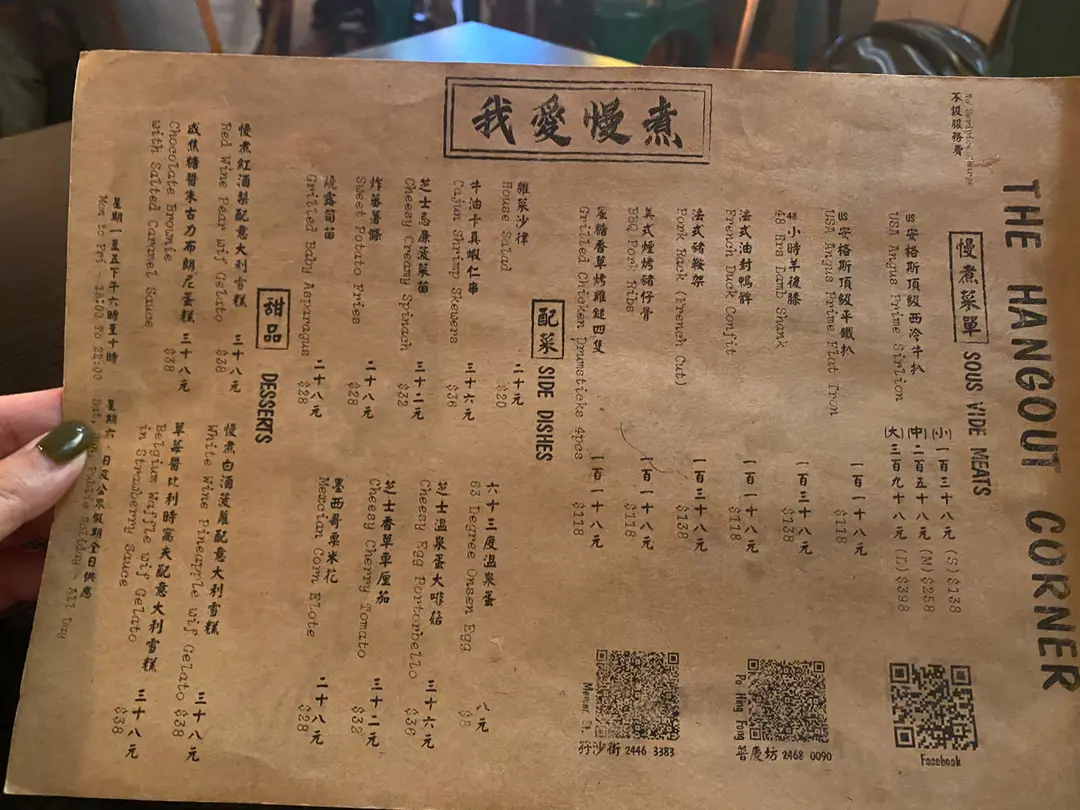 THE HANGOUT CORNER
不設服務費
我愛慢煮
慢煮菜單 SOUS VIDE MEATS
US安格斯頂級西冷牛扒 (小)一百三十八元 (S)$138
USA Angus Prime Sirlion (中)二百五十八元 (M)$258
(大)三百九十八元 (L)$398
US安格斯頂級平鐵扒 一百一十八元
USA Angus Prime Flat Iron $118
48小時羊後膝 一百三十八元
48 Hrs Lamb Shank $138
法式油封鴨髀 一百一十八元
French Duck Confit $118
法式豬鞍架 一百三十八元
Pork Rack (French Cut) $138
美式煙烤豬仔骨 一百一十八元
BBQ Pork Ribs $118
蜜糖香草烤雞鎚四隻 一百一十八元
Grilled Chicken Drumsticks 4pcs $118
配菜 SIDE DISHES
雜菜沙律 二十元
House Salad $20
牛油千真蝦仁串 三十六元
Cajun Shrimp Skewers $36
芝士忌廉菠菜苗 三十二元
Cheesy Creamy Spinach $32
炸蕃薯條 二十八元
Sweet Potato Fries $28
燒露筍苗 二十八元
Grilled Baby Asparagus $28
六十三度溫泉蛋 八元
63 Degree Onsen Egg $8
芝士溫泉蛋大啡菇 三十六元
Cheesy Egg Portonbello $36
芝士香草車厘茄 三十二元
Cheesy Cherry Tomato $32
墨西哥粟米花 二十八元
Mexcian Corn Elote $28
甜品 DESSERTS
慢煮紅酒梨配意大利雪糕 三十八元
Red Wine Pear wif Gelato $38
咸焦糖醬朱古力布朗尼蛋糕 三十八元
Chocolate Brownie $38
with Salted Carmel Sauce
慢煮白酒菠蘿配意大利雪糕 三十八元
White Wine Pineapple wif Gelato $38
草莓醬比利時窩夫配意大利雪糕 三十八元
Belgium Waffle wif Gelato $38
in Strawberry Sauce
星期一至五下午六時至十時 星期六、日及公眾假期全日供應
Mon to Fri - 1800 TO 22:00 Sat, Sun, Public Holiday - All Day
Facebook
Po Hing Fong
普慶坊 2468 0090
Mercer St.
孖沙街 2446 3383